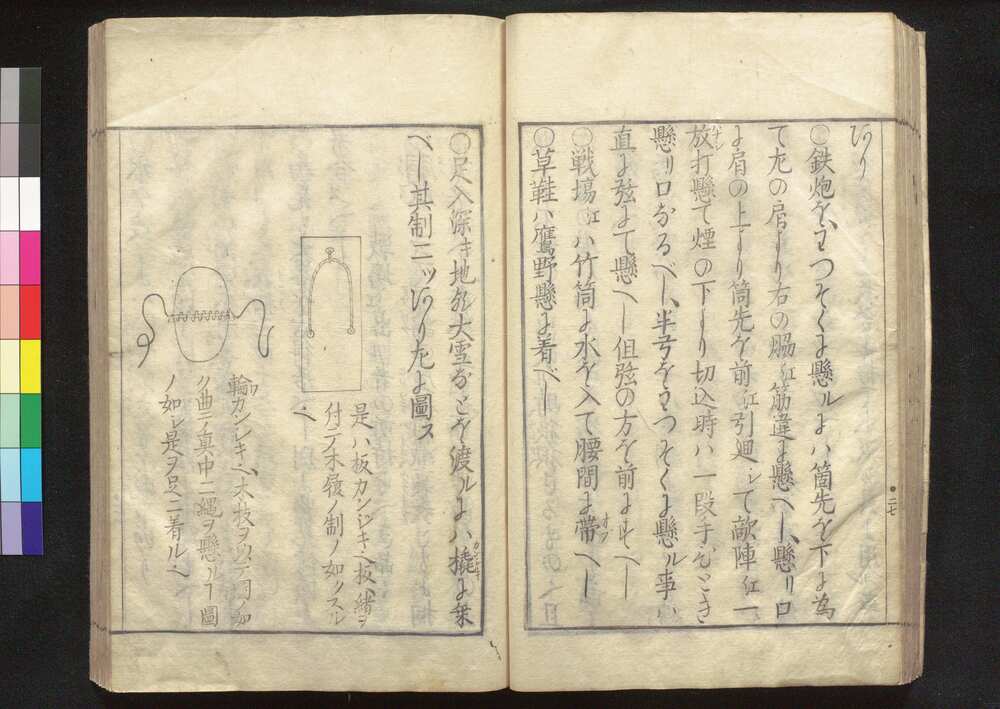 あり
○鉄炮をわつそくに懸ルにハ筒先を下に為
て左の肩より右の脇江筋違に懸へし、懸り口
よ肩の上より筒先を前江引廻シて敵陣江一
放打懸て煙の下より切込時ハ一段手ばしとき
懸り口なるべし、半弓をわつそくに懸ル事ハ
直に弦にて懸へし但弦の方を前にすへし
○戦場江ハ竹筒に水を入て腰間に帯へし
○草鞋ハ鷹野懸に着べし
二七
○足入深キ地或大雪などを渡ルにハ橇に乗
べし其制二ツあり左に圖ス
是ハ板カンジキ也板ハ緒ヲ
付テ木履ノ制ノ如クスル
也
輪カンジキハ木枝ヲ以テ同ノ如
ク曲テ真中ニ縄ヲ懸ルヿ圖
ノ如シ是ヲ足ニ着ル也